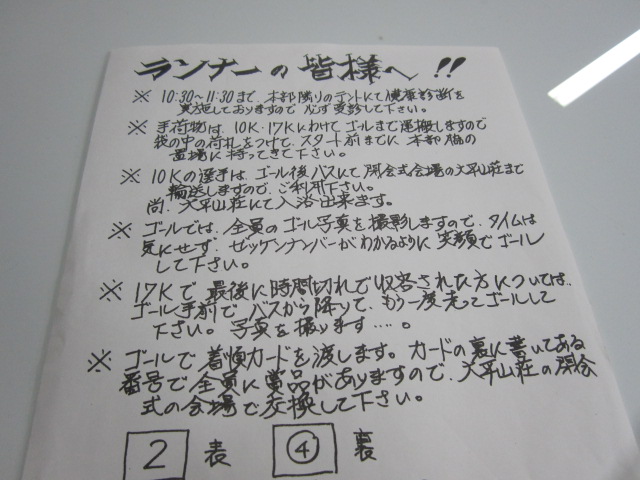 ランナーの皆様へ!!
※ 10:30~11:30まで、本部隣りのテントにて健康診断を
実施しておりますので必ず受診して下さい。
※ 手荷物は、10K・17Kにわけてゴールまで運搬しますので
袋の中の荷札をつけて、スタート前までに本部脇の
置場に持ってきて下さい。
※ 10Kの選手は、ゴール後バスにて閉会式会場の大平山荘まで
輸送しますので、ご利用下さい。
尚、大平山荘にて入浴出来ます。
※ ゴールでは、全員のゴール写真を撮影しますので、タイムは
気にせず、ゼッケンナンバーがわかるように笑顔でゴール
して下さい。
※ 17Kで最後に時間切れで収容された方については、
ゴール手前で、バスから降りて、もう一度走ってゴールして
下さい。写真を撮ります....。
※ ゴールで着順カードを渡します。カードの裏に書いてある
番号で全員に賞品がありますので、大平山荘の閉会
式の会場で交換して下さい。
2 表 ④ 裏